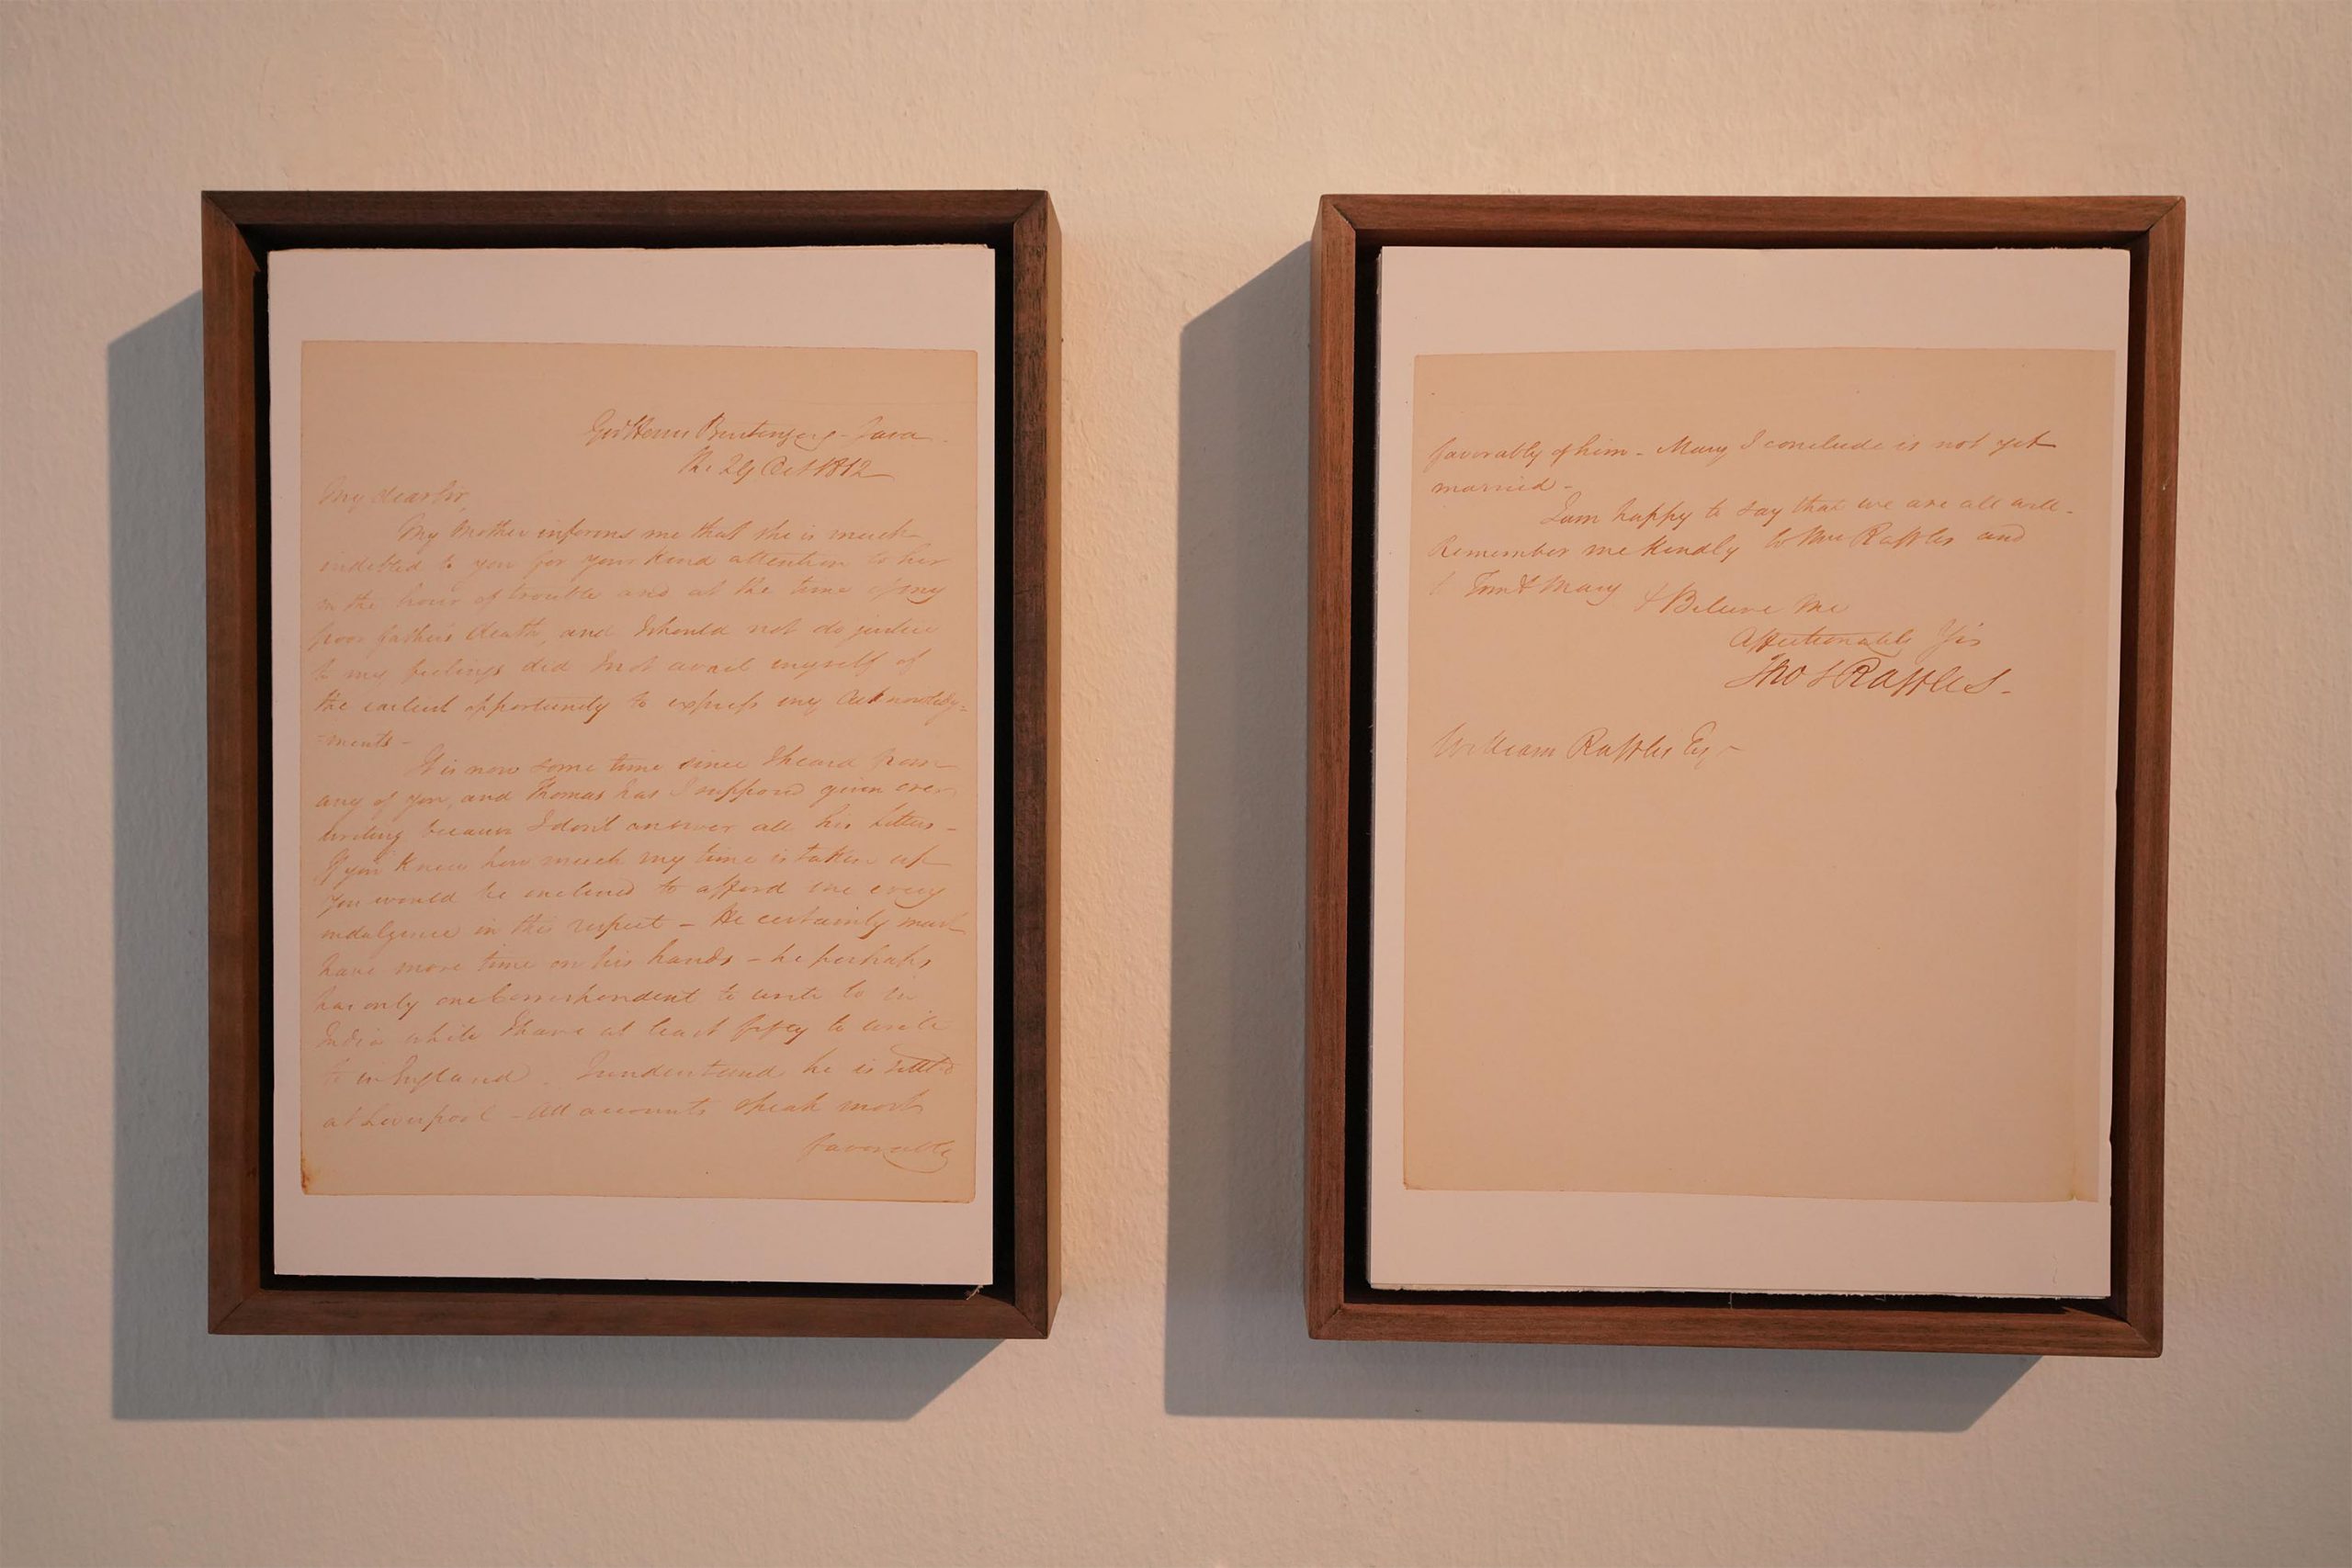 Govt House Buitenzorg - Java
The 29 Oct 1812
My dear Sir,
My Mother informs me that she is much
indebted to you for your kind attention to her
in the hour of trouble and at the time of my
poor fathers death, and I should not do justice
to my feelings did I not avail myself of
the earliest opportunity to express my Acknowledg=
=ments -
It is now some time since I heard from
any of you, and Thomas has I suppose given over
writing because I don't answer all his letters -
If you knew how much my time is taken up
you would be inclined to afford me every
indulgence in this respect - He certainly must
have more time on his hands - he perhaps
has only one Correspondent to write to in
India while I have at least fifty to write
to in England. I understand he is settled
at Liverpool - All accounts speak most
favorably
favorably of him - Mary I conclude is not yet
married -
I am happy to say that we are all well -
Remember me kindly to Mrs Raffles and
to Tom & Mary & Believe me
Affectionately Yrs
Tho S Raffles -
William Raffles Esq